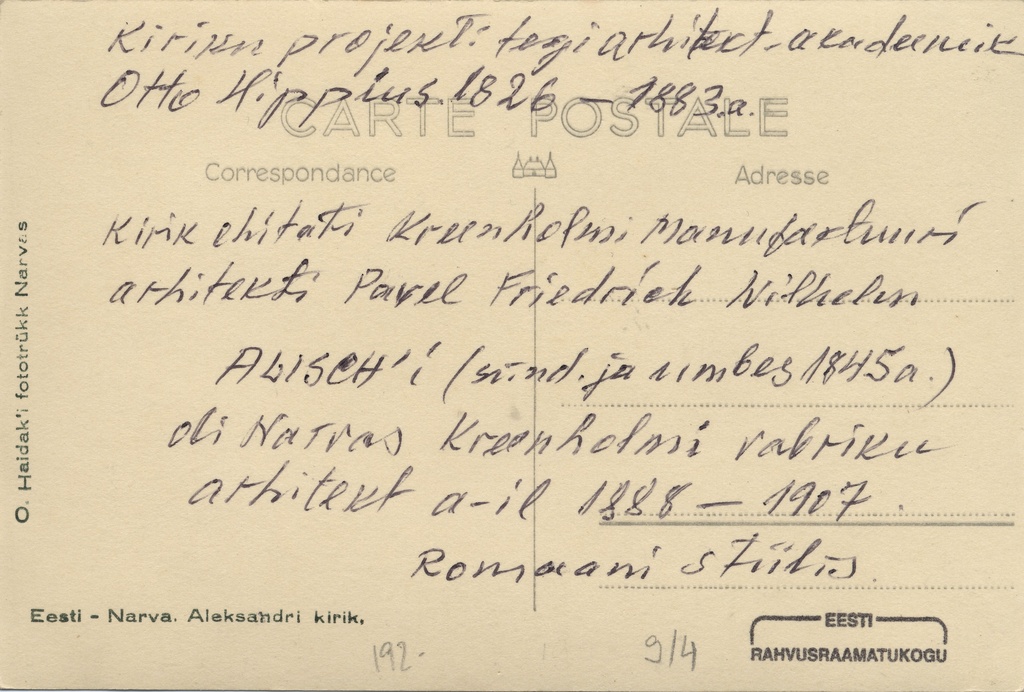 Kiriku projekti tegi arhitekt-akadeemik
Otto Hippius. 1826 - 1883.a.
CARTE POSTALE
Correspondance
Adresse
Kirik ehitati Kreenholmi Manufaktuuri
arhitekti Pavel Friedrich Wilhelm
ALISCH'i (sünd. ja umbes 1845a.)
oli Narvas Kreenholmi vabriku
arhitekt a-il 1888 - 1907.
Romaani stiilis
O. Haidak'i fototrükk Narvas
Eesti - Narva. Aleksandri kirik,
192-
9/4
EESTI
RAHVUSRAAMATUKOGU